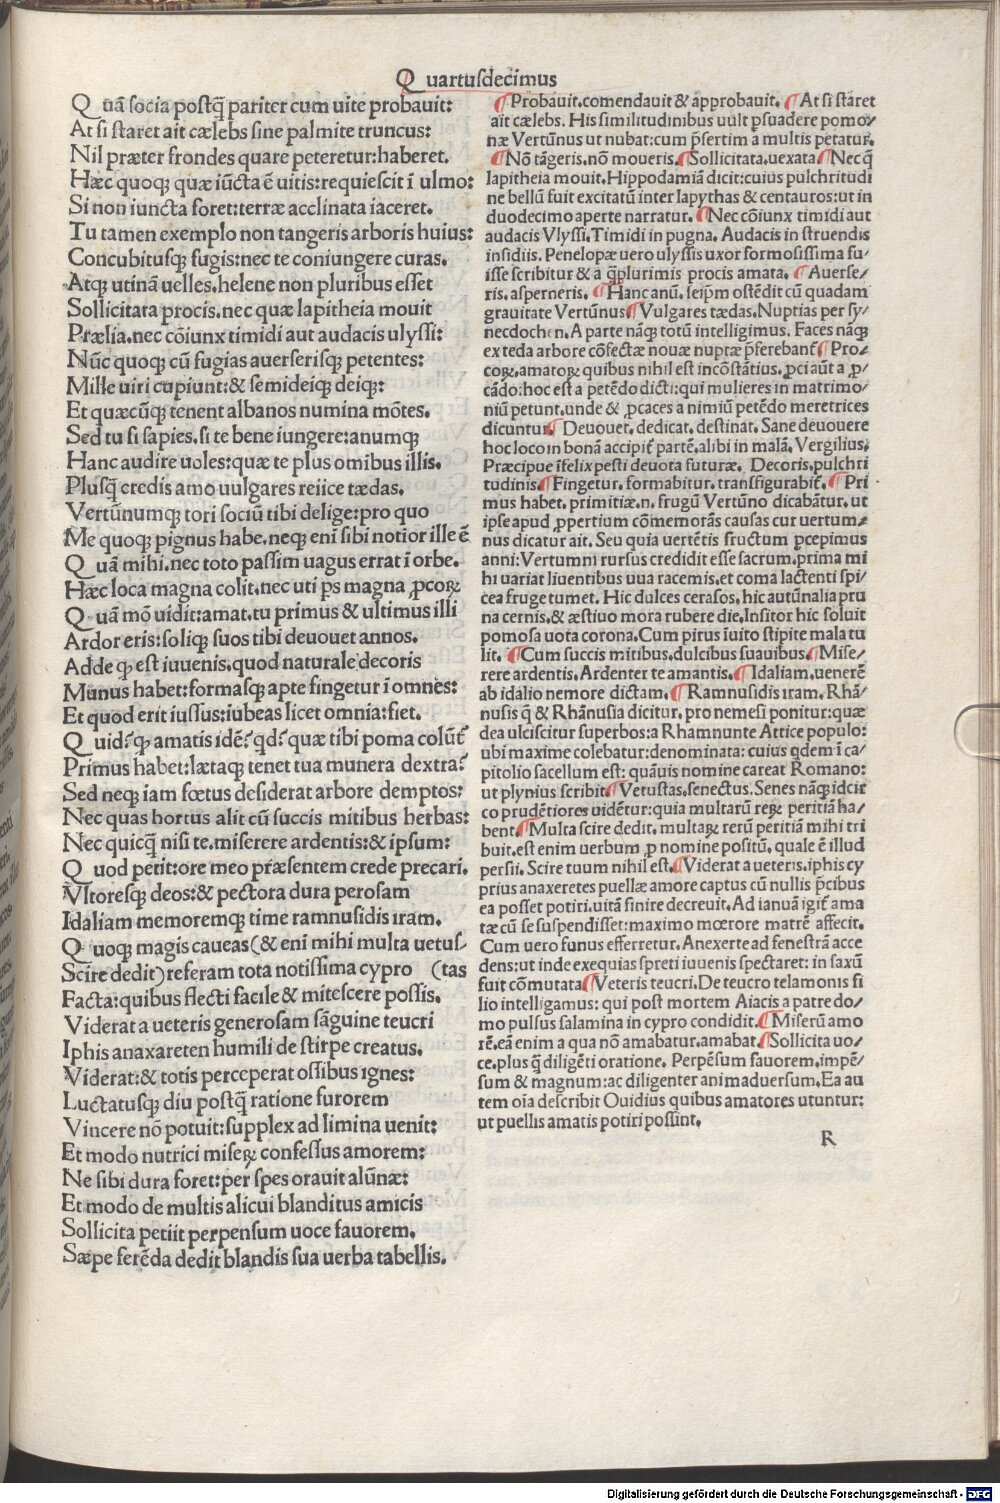 Quartusdecimus
Q uā socia postq̄ pariter cum uite probauit:
At si staret ait cælebs sine palmite truncus:
Nil præter frondes quare peteretur:haberet.
Hæc quoq; quæ iūcta ē uitis:requiescit ī ulmo:
Si non iuncta foret:terræ acclinata iaceret.
Tu tamen exemplo non tangeris arboris huius:
Concubitusq; fugis:nec te coniungere curas.
Atq; utinā uelles.helene non pluribus esset
Sollicitata procis.nec quæ lapitheia mouit
Prælia.nec cōiunx timidi aut audacis ulyssi:
Nūc quoq; cū fugias auerserisq; petentes:
Mille uiri cupiunt:& semideiq; deiq;:
Et quæcūq; tenent albanos numina mōtes.
Sed tu si sapies.si te bene iungere:anumq;
Hanc audire uoles:quæ te plus omibus illis.
Plusq̄ credis amo uulgares reiice tædas.
Vertūnumq; tori sociū tibi delige:pro quo
Me quoq; pignus habe.neq; eni sibi notior ille ē
Q uā mihi.nec toto passim uagus errat ī orbe.
Hæc loca magna colit.nec uti ps magna ꝓcoꝝ
Q uā mō uidit:amat.tu primus & ultimus illi
Ardor eris:soliq; suos tibi deuouet annos.
Adde q; est iuuenis.quod naturale decoris
Munus habet:formasq; apte fingetur ī omnes:
Et quod erit iussus:iubeas licet omnia:fiet.
Q uid?q; amatis idē?qd?quæ tibi poma colūt
Primus habet:lætaq; tenet tua munera dextra?
Sed neq; iam fœtus desiderat arbore demptos:
Nec quas hortus alit cū succis mitibus herbas:
Nec quicq̄ nisi te.miserere ardentis:& ipsum:
Q uod petit:ore meo præsentem crede precari.
Vltoresq; deos:& pectora dura perosam
Idaliam memoremq; time ramnusidis iram.
Q uoq; magis caueas(& eni mihi multa uetus-
Scire dedit)referam tota notissima cypro (tas
Facta:quibus flecti facile & mitescere possis.
Viderat a ueteris generosam sāguine teucri
Iphis anaxareten humili de stirpe creatus.
Viderat:& totis perceperat ossibus ignes:
Luctatusq; diu postq̄ ratione furorem
Vincere nō potuit:supplex ad limina uenit:
Et modo nutrici miseꝝ confessus amorem:
Ne sibi dura foret:per spes orauit alūnæ:
Et modo de multis alicui blanditus amicis
Sollicita petiit perpensum uoce fauorem.
Sæpe ferēda dedit blandis sua uerba tabellis.
¶Probauit.comendauit & approbauit. ¶At si staret
ait cælebs. His similitudinibus uult psuadere pomo/
næ Vertūnus ut nubat:cum p̄sertim a multis petatur.
¶Nō tāgeris.nō moueris.¶Sollicitata.uexata ¶Nec q̄
lapitheia mouit.Hippodamiā dicit:cuius pulchritudi
ne bellū fuit excitatū inter lapythas & centauros:ut in
duodecimo aperte narratur. ¶Nec cōiunx timidi aut
audacis Vlyssi.Timidi in pugna. Audacis in struendis
insidiis. Penelopæ uero ulyssis uxor formosissima fu/
isse scribitur & a q̄plurimis procis amata. ¶Auerse/
ris.asperneris. ¶Hanc anū.seipm ostēdit cū quadam
grauitate Vertūnus ¶Vulgares tædas.Nuptias per sy/
necdochen.A parte nāq; totū intelligimus. Faces nāq;
ex teda arbore cōfectæ nouæ nuptæ p̄ferebant ¶Pro/
coꝝ.amatoꝝ quibus nihil est incōstātius. ꝓci aūt a ꝓ/
cādo:hoc est a petēdo dicti:qui mulieres in matrimo/
niū petunt.unde & ꝓcaces a nimiū petēdo meretrices
dicuntur. ¶Deuouet. dedicat. destinat. Sane deuouere
hoc loco in bonā accipit partē.alibi in malā. Vergilius.
Præcipue īfelix pesti deuota futuræ. Decoris.pulchri
tudinis.¶Fingetur. formabitur. transfigurabit. ¶Pri
mus habet. primitiæ.n. frugū Vertūno dicabātur. ut
ipse apud ꝓpertium cōmemorās causas cur uertum/
nus dicatur ait. Seu quia uertētis fructum pcepimus
anni:Vertumni rursus credidit esse sacrum.prima mi
hi uariat liuentibus uua racemis.et coma lactenti spi/
cea fruge tumet. Hic dulces cerasos. hic autūnalia pru
na cernis.& æstiuo mora rubere die.Insitor hic soluit
pomosa uota corona.Cum pirus īuito stipite mala tu
lit. ¶Cum succis mitibus.dulcibus suauibus.¶Mise/
rere ardentis. Ardenter te amantis. ¶Idaliam.uenerē
ab idalio nemore dictam. ¶Ramnusidis iram. Rhā/
nusis q̄ & Rhānusia dicitur. pro nemesi ponitur:quæ
dea ulciscitur superbos:a Rhamnunte Attice populo:
ubi maxime colebatur:denominata: cuius qdem ī ca/
pitolio sacellum est: quāuis nomine careat Romano:
ut plynius scribit¶Vetustas.senectus. Senes nāq; idcir
co prudētiores uidētur:quia multarū reꝝ peritiā ha/
bent.¶Multa scire dedit. multaꝝ rerū peritiā mihi tri
buit.est enim uerbum ꝓ nomine positū. quale ē illud
persii. Scire tuum nihil est.¶Viderat a ueteris.iphis cy
prius anaxeretes puellæ amore captus cū nullis p̄cibus
ea posset potiri.uitā finire decreuit. Ad ianuā igit ama
tæ cū se suspendisset:maximo mœrore matrē affecit.
Cum uero funus efferretur. Anexerte ad fenestrā acce
dens:ut inde exequias spreti iuuenis spectaret: in saxū
fuit cōmutata¶Veteris teucri.De teucro telamonis fi
lio intelligamus: qui post mortem Aiacis a patre do/
mo pulsus salamina in cypro condidit.¶Miserū amo
rē.eā enim a qua nō amabatur.amabat.¶Sollicita uo/
ce.plus q̄ diligēti oratione. Perpēsum fauorem.impē/
sum & magnum:ac diligenter animaduersum.Ea au
tem oīa describit Ouidius quibus amatores utuntur:
ut puellis amatis potiri possint.
R
Digitalisierung gefördert durch die Deutsche Forschungsgemeinschaft - DFG